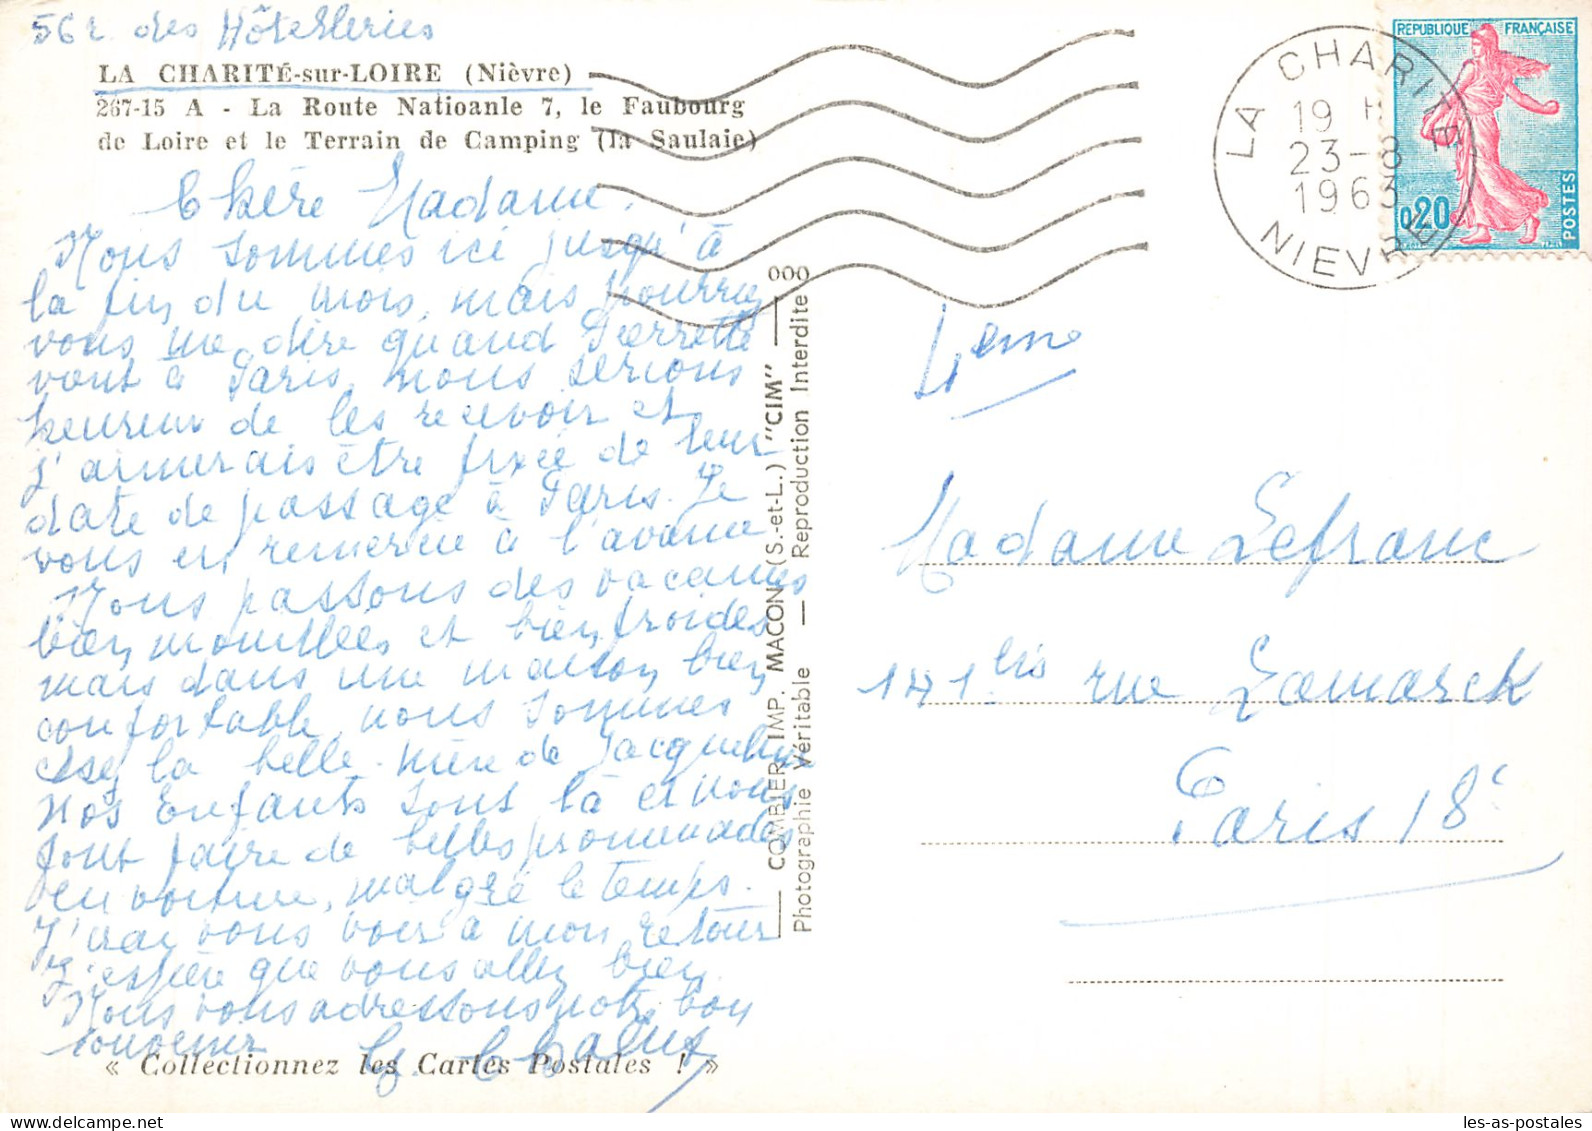 56 r. des Hôtelleries
LA CHARITÉ-sur-LOIRE (Nièvre)
267-15 A - La Route Natioanle 7, le Faubourg
de Loire et le Terrain de Camping (la Saulaie)
Chère Madame.
Nous sommes ici jusqu'à
la fin du mois, mais pourriez
vous me dire quand Pierrette
vont à Paris, nous serions
heureux de les recevoir et
j'aimerais être fixée de leur
date de passage à Paris. Je
vous en remercie à l'avance
Nous passons des vacances
bien mouillées et bien froides
mais dans une maison bien
confortable, nous sommes
chez la belle-mère de Jacqueline
Nos Enfants sont là et nous
font faire de belles promenades
en voiture, malgré le temps.
J'irai vous voir à mon retour
J'espère que vous allez bien.
Nous vous adressons notre bon
souvenir
« Collectionnez les Cartes Postales ! »
COMBIER IMP. MACON (S.-et-L.) "CIM"
Photographie Véritable — Reproduction Interdite
000
LA CHARITE
19 H
23-8
1963
NIEVRE
REPUBLIQUE FRANÇAISE
0,20
POSTES
4eme
Madame Lefranc
141 bis rue Lamarck
Paris 18e
les-as-postales.com